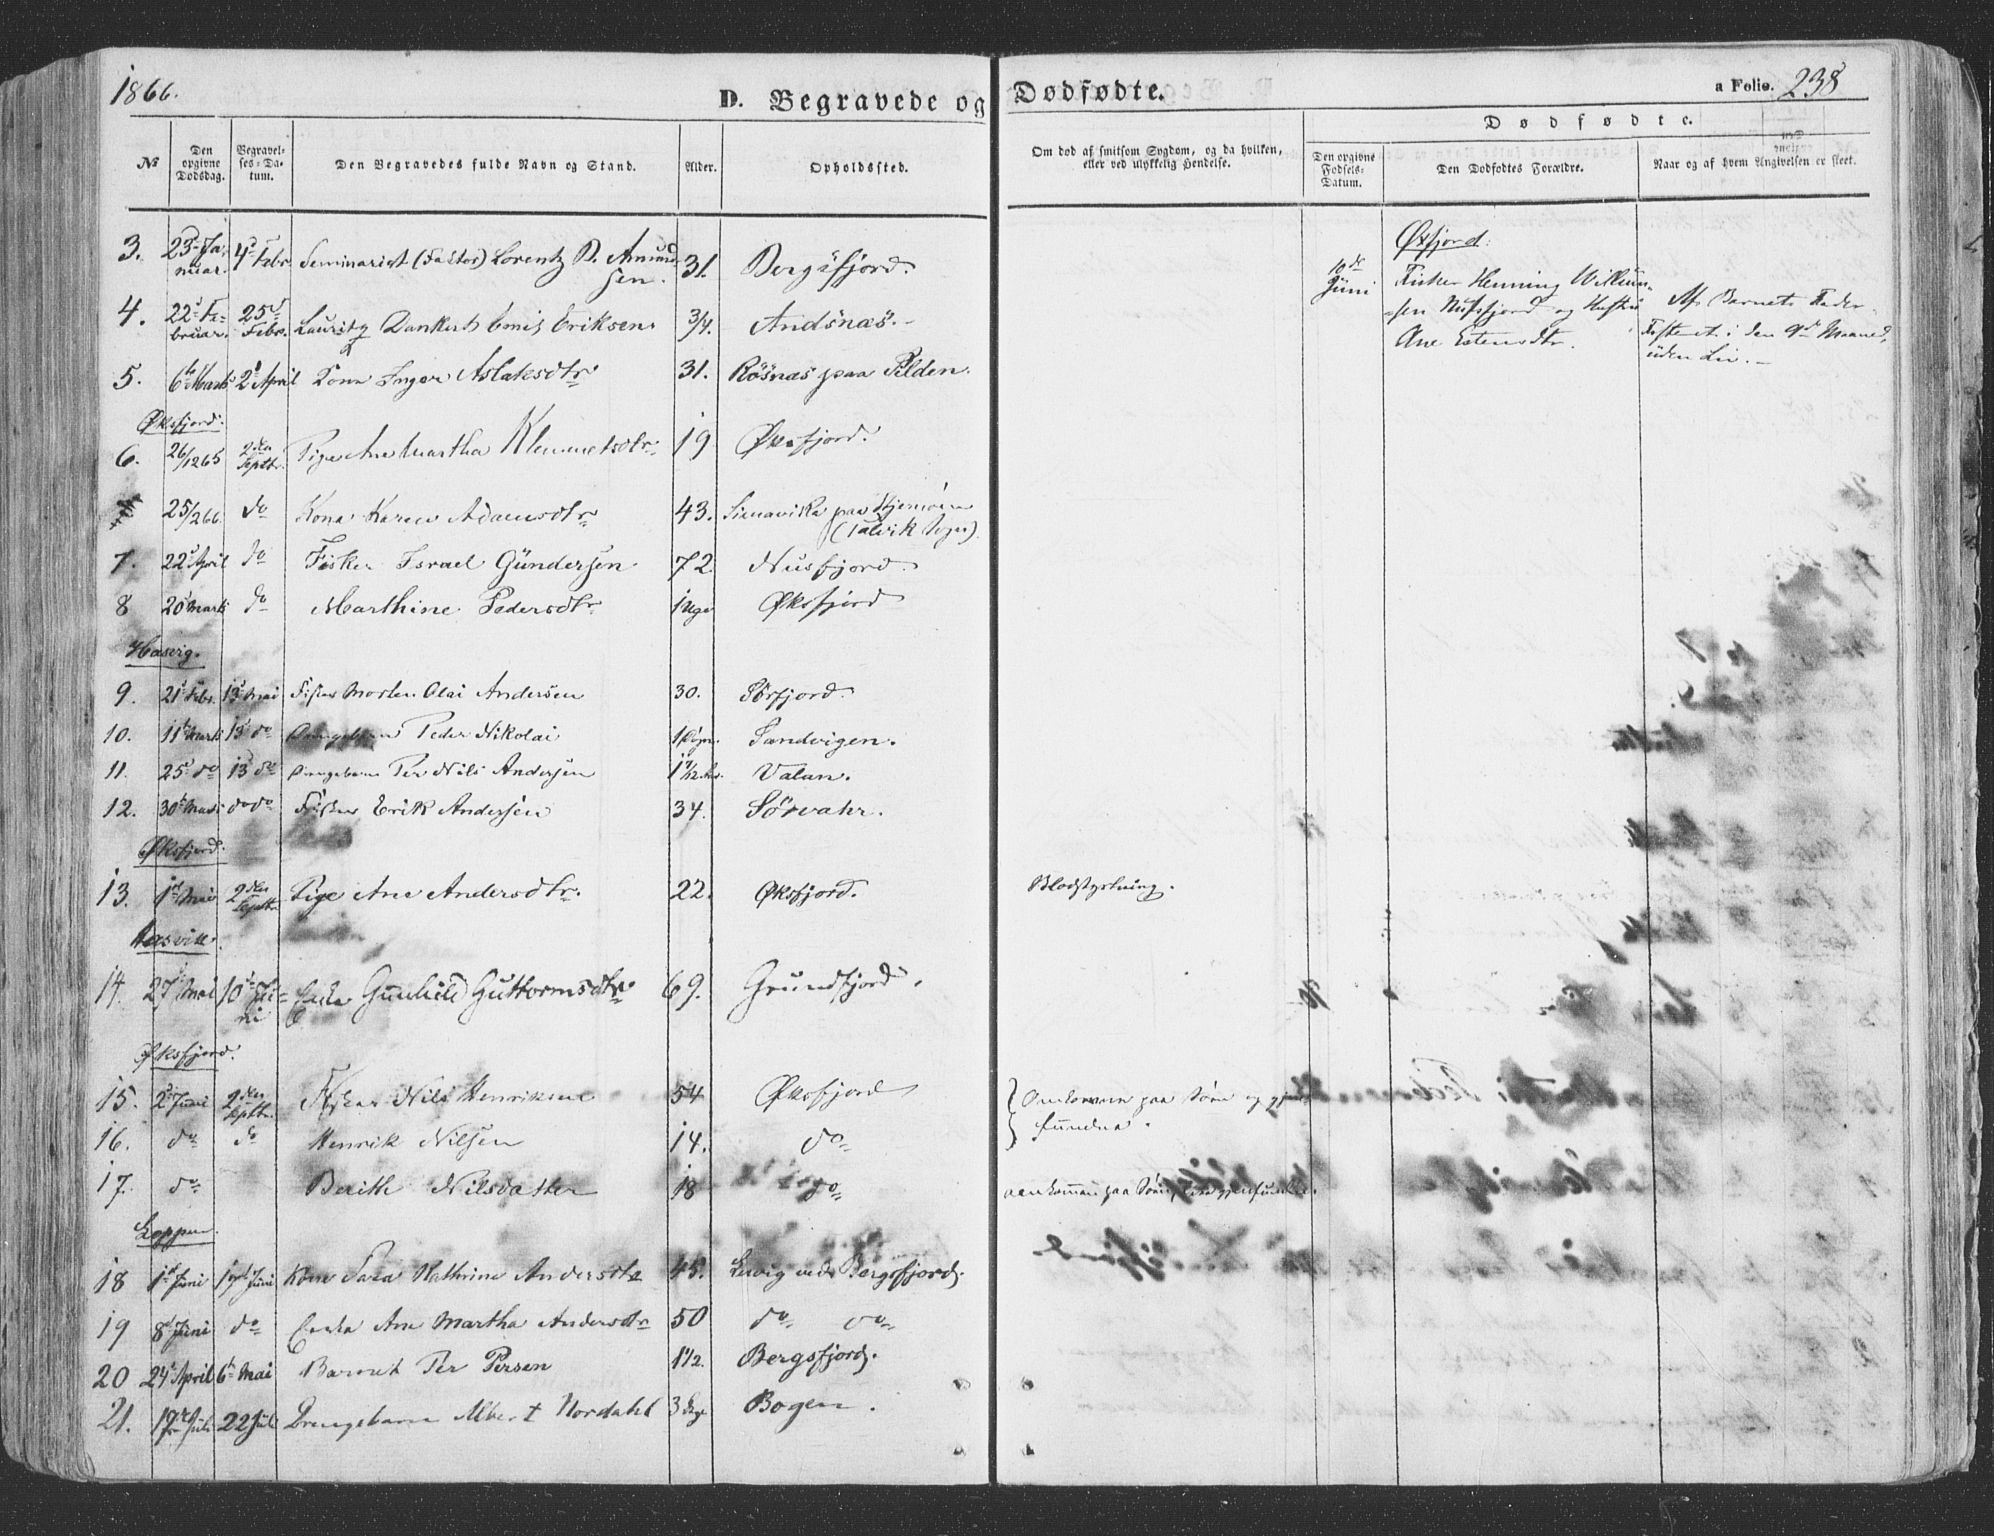 1866.
D. Begravede og Dødfødte.
a Folio. 238
Dødfødte.
No
Den opgivne Dødsdag.
Begravelses-Datum.
Den Begravedes fulde Navn og Stand.
Alder.
Opholdssted.
Om død af smitsom Sygdom, og da hvilken, eller ved ulykkelig Hendelse.
Den opgivne Fødsels-Datum.
Den Dødfødtes Forældre.
Naar og af hvem Angivelsen er skeet.
3. 23 Januar. 4 Febr. Seminarist (Faktor) Lorentz D. Amundsen. 31. Bergsfjord.
4. 22 Februar. 25 Febr. Lauritz Dankert Emil Eriksen. 3/4. Andsnæs.
5. 6te Marts 2 April Kona Inger Aslaksdtr 31. Rösnæs paa Felden.
Øksfjord:
6. 26/12 65 2den Septbr. Pige Ane Martha Klemmetsdtr 19 Øksfjord.
25/2 66. do Kona Karen Adamsdtr 43. Simavika paa Stjernöen
(Talvik Sogn).
7. 22 April do Fisker Israel Gundersen 72 Nusfjord.
8 20 Marts do Marthine Pedersdtr 1 Uge Øksfjord
Hasvig.
9. 21 Febr. 13 Mai Fisker Morten Olai Andersen 30. Sörfjord.
10. 11te Marts 13 do Drengebarn Peder Nikolai 1 Døgn. Sandvigen.
11. 25 do 13 do Drengebarn Per Nils Andersen Valan.
12. 30te Marts do do Fisker Erik Andersen 34. Sörvahr.
Øksfjord:
13. 1ste Mai 2den Septbr. Pige Ane Andersdtr. 22. Øksfjord. Blodstyrtning.
Hasvik.
14. 27 Mai 10 Juni Enke Gunhild Guttormsdtr 69. Grundfjord.
Øksfjord.
15. 2 Juni 2den Septbr. Fisker Nils Henriksen 54 Øksfjord Omkommen paa Søen og gjenfundne.
16. do do Henrik Nilsen 14. do
17. do Berith Nilsdatter 18 do omkommen paa Søen, ikke gjenfunden.
Loppen.
18 1ste Juni Juni Kone Sara Kathrine Andersdtr 45. Lervig ved Bergsfjord.
19 8 Juni do Enke Ane Martha Andersdtr 50 do do
20 24 April 6te Mai Barnet Per Persen 1 1/2. Bergsfjord.
21. 17de Juli 22 Juli Drengebarn Albert Nordahl 3 Bogen.
Øxfjord:
10de Juni
Fisker Henning Willumsen Nussfjord og Hustru
Ane Estensdtr.
Af Barnets Fader
Fosteret i den 9de Maaned,
uden Liv.